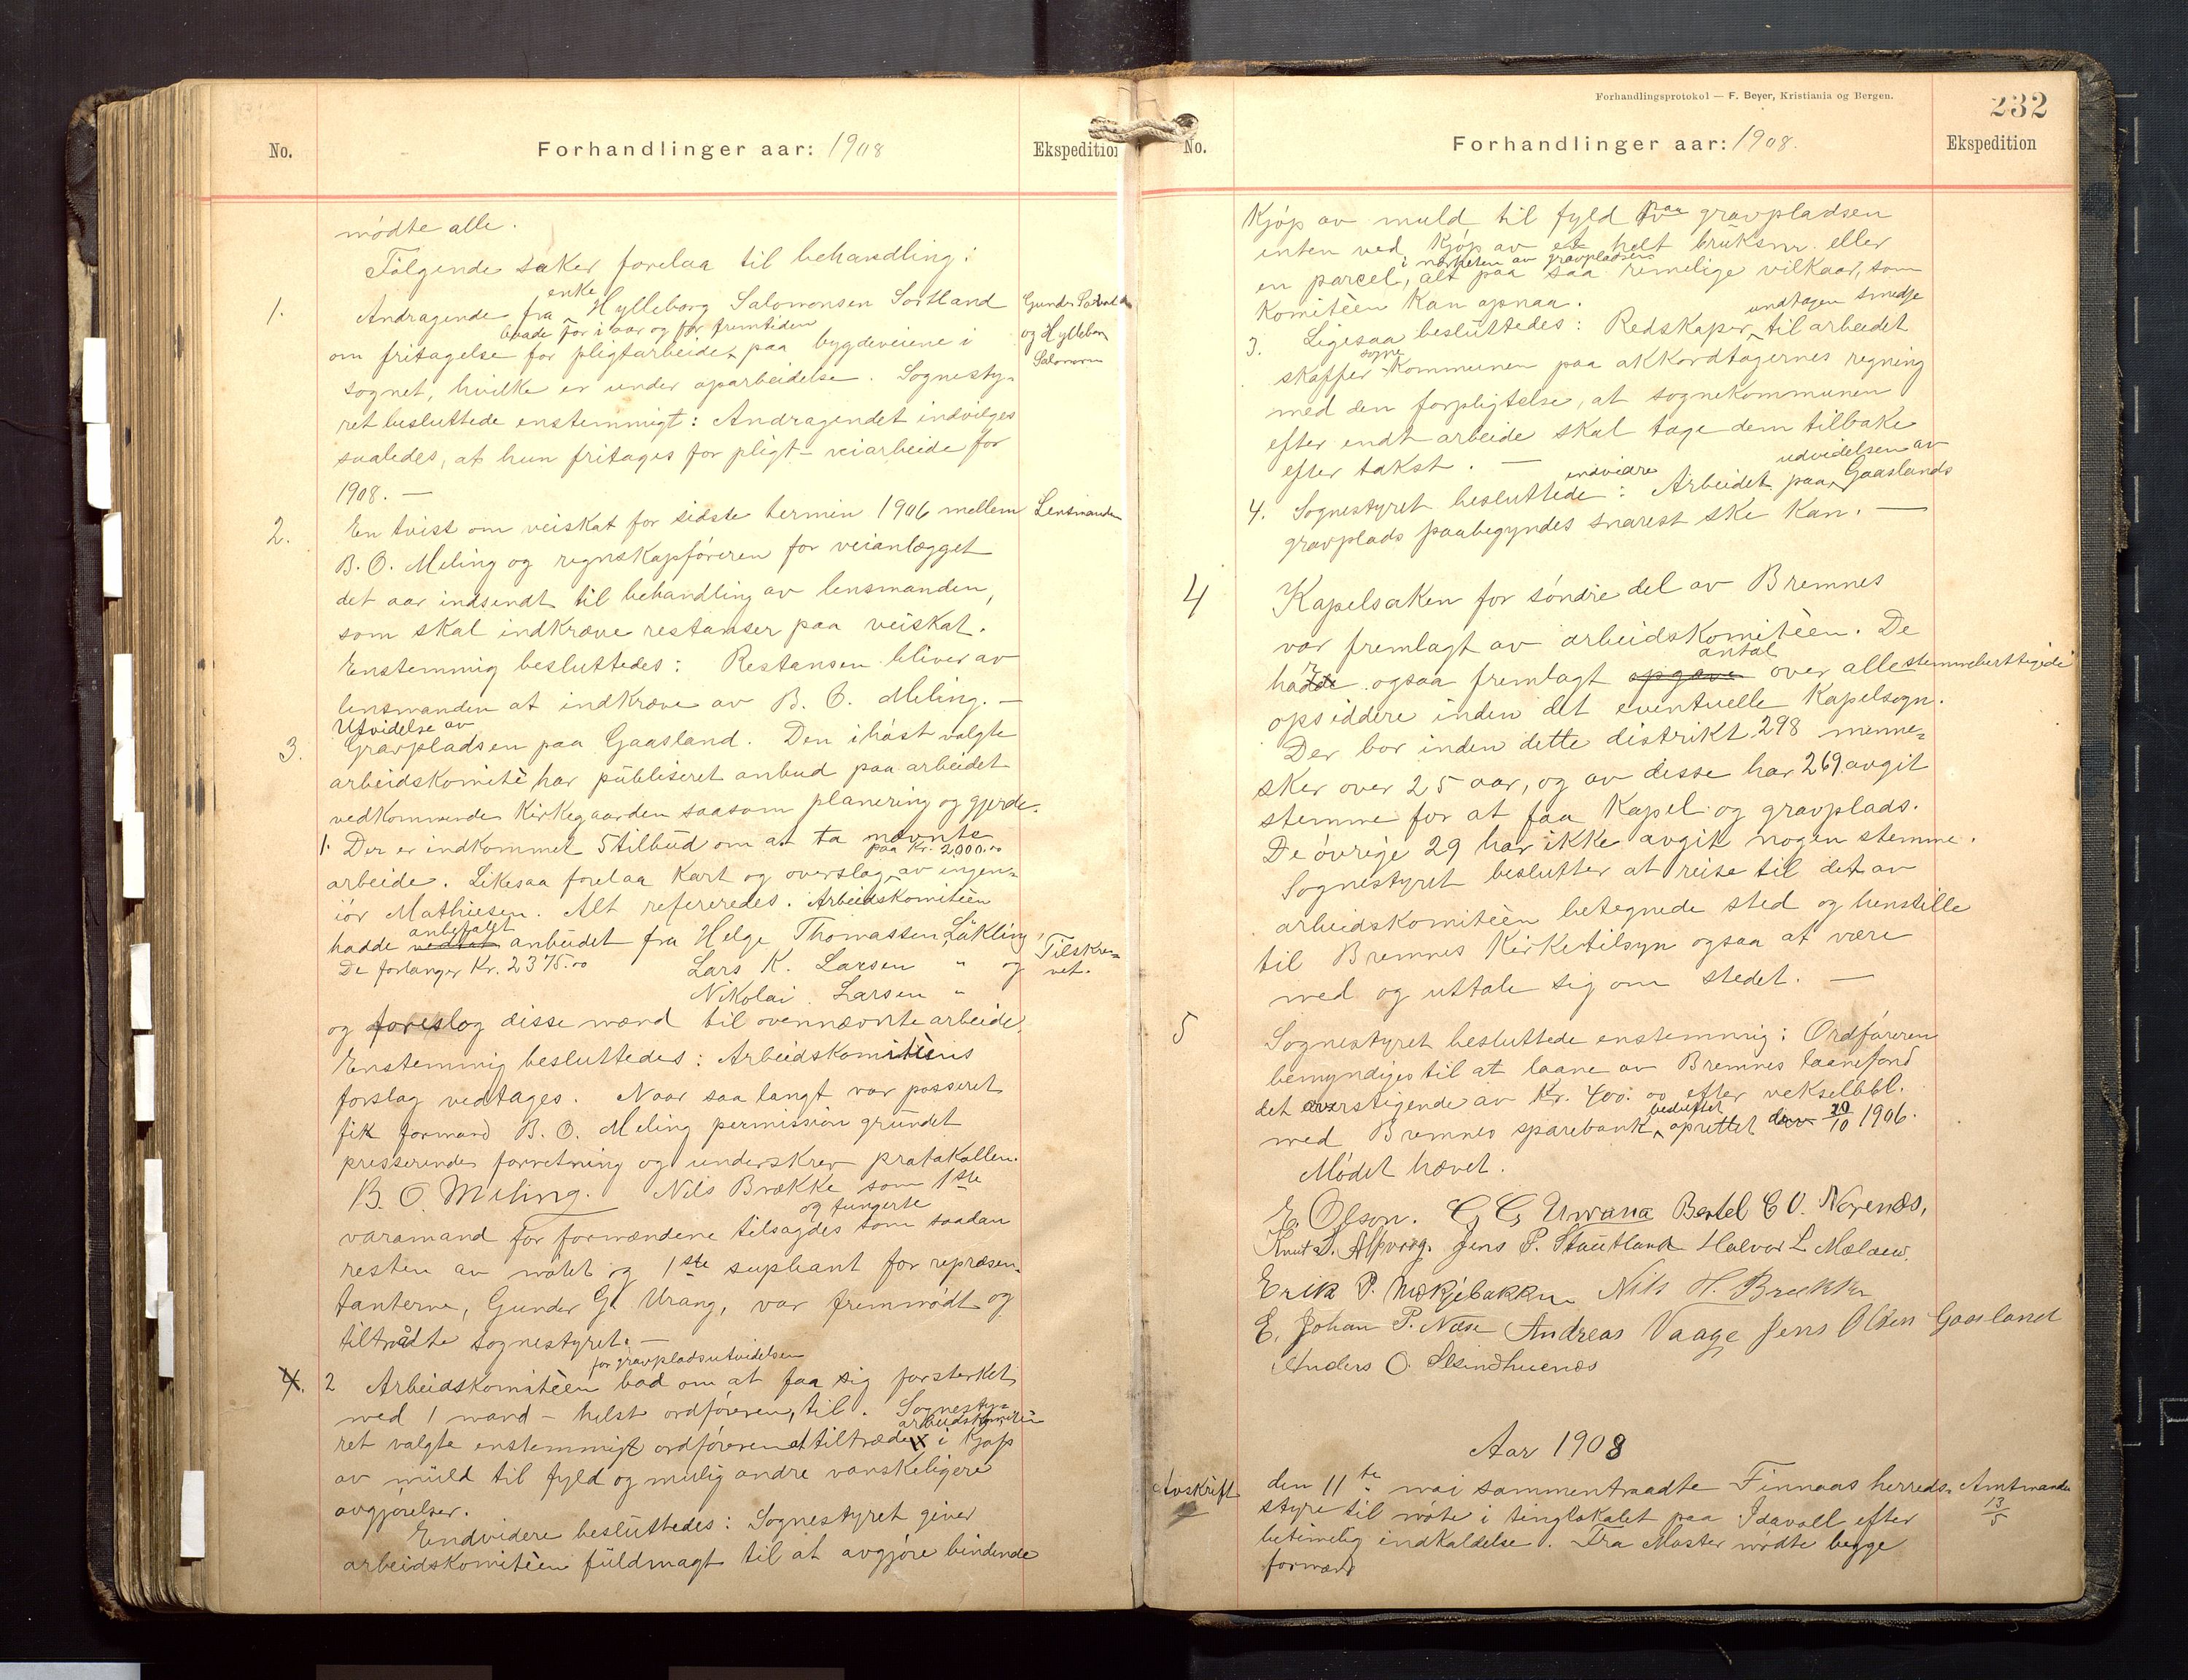 No.
Forhandlinger aar: 1908
Ekspedition
mødte alle.
Følgende saker forelaa til behandling:
1.
enke
Andragende fra Hylleborg Salomonsen Sortland
baade for i aar og for fremtiden
om fritagelse for pligtarbeide paa bygdeveiene i
sognet, hvilke er under oparbeidelse. Sognesty-
ret besluttede enstemmigt: Andragendet indvilges
saaledes, at hun fritages for pligt-veiarbeide for
1908. —
Gunder
og Hylleborg
2.
En tvist om veiskat for sidste termin 1906 mellem
Lensmanden
B. O. Meling og regnskapføreren for veianlægget
det aar indsendt til behandling av lensmanden,
som skal indkræve restanser paa veiskat.
Enstemmig besluttedes: Restansen bliver av
lensmanden at indkræve av B. O. Meling. —
3.
Utvidelse av
Gravpladsen paa Gaasland. Den i høst valgte
arbeidskomitè har publiseret anbud paa arbeidet
vedkommende Kirkegaarden saasom planering og gjerde.
1. Der er indkommet 5 tilbud om at ta nævnte
paa Kr. 2000.00
arbeide. Likesaa forelaa Kart og overslag av ingen-
iør Mathiesen. Alt refereredes. Arbeidskomitèen
anbefalet
hadde vedtat anbudet fra Helge Thomassen Løkling,
De forlanger Kr. 2375.00 Lars K. Larsen " og
Nikolai Larsen "
Tilskre-
vet.
og foreslog disse mænd til ovennævnte arbeide.
Enstemmig besluttedes: Arbeidskomitèens
forslag vedtages. Naar saa langt var passeret
fik formand B. O. Meling permission grundet
presserende forretning og underskrev protokollen.
B. O. Meling. Nils Brække som 1ste
og fungerte
varamand for formændene tilsagdes som saadan
resten av mødet og 1ste supleant for repræsen-
tanterne, Gunder G. Urang, var fremmødt og
tiltrådte sognestyret. —
for gravpladsutvidelsen
4. 2 Arbeidskomitèen bad om at faa sig forsterket
med 1 mand - helst ordføreren, til. Sognesty-
arbeidskomitèen
ret valgte enstemmigt ordføreren at tiltræde i Kjøp
av muld til fyld og mulig andre vanskeligere
avgjørelser.
Endvidere besluttedes: Sognestyret giver
arbeidskomitèen fuldmagt til at avgjøre bindende
Forhandlingsprotokol — F. Beyer, Kristiania og Bergen.
232
No.
Forhandlinger aar: 1908.
Ekspedition
Kjøp av muld til fyld paa gravpladsen
enten ved Kjøp av et helt bruksnr. eller
i nærheten av gravpladsen
en parcel, alt paa saa rimelige vilkaar, som
Komitèen Kan opnaa.
undtagen smedje
3. Ligesaa besluttedes: Redskaper til arbeidet
sogne
skaffer Kommunen paa akkordtagernes regning
med den forpligtelse, at sognekommunen
efter endt arbeide skal tage dem tilbake
efter takst. —
endvidre
udvidelsen av
4. Sognestyret besluttede: Arbeidet paa Gaaslands
gravplads paabegyndes snarest ske Kan. —
4
Kapelsaken for søndre del av Bremnes
var fremlagt av arbeidskomitèen. De
antal
hadde ogsaa fremlagt opgave over alle stemmeberttigede
opsiddere inden det eventuelle Kapelsogn.
Der bor inden dette distrikt 298 menne-
sker over 25 aar, og av disse har 269 avgit
stemme for at faa Kapel og gravplads.
De øvrige 29 har ikke avgit nogen stemme.
Sognestyret beslutter at reise til det av
arbeidskomitèen betegnede sted og henstille
til Bremnes Kirketilsyn ogsaa at være
med og uttale sig om stedet. —
5
Sognestyret besluttede enstemmig: Ordføreren
bemyndiges til at laane av Bremnes laanefond
det overstigende av Kr. 400.00 efter vekselobl.
besluttet
med Bremnes sparebank oprettet den 20/10 1906.
Mødet hævet.
E. Olson. G. G. Urrang Bertel C O. Norenæs,
Knut S. Alfvorg. Jens P. Stautland Halvor L. Mælaen.
Erik P. Mækjebakken Nils H. Brække
E. Johan P. Næse Andreas Vaage Jens Olsen Gaasland
Anders O.
Aar 1908
Avskrift
den 11te mai sammentraadte Finnaas herreds-
Amtmanden
13/5
styre til møte i tinglokalet paa Idavoll efter
betimelig indkaldelse. Fra Moster mødte begge
formænd